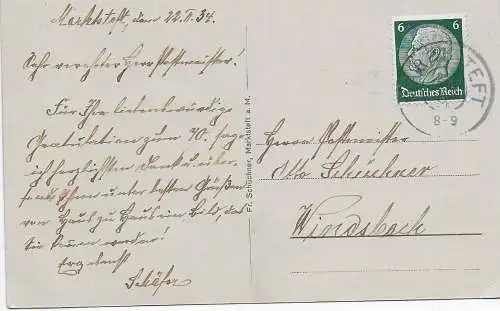 Marktsteft, den 22.II.34.
Sehr verehrter Herr Postmeister!
Für Ihre liebenswürdige
Gratulation zum 70. sage
ich herzlichsten Dank u. über-
sende Ihnen unter besten Grüßen
von Haus zu Haus im Bild, das
Sie
Ergebenst
Schäfer
Fr. Schüchner, Marktsteft a. M.
6 6
Deutsches Reich
STEFT
8-9
Herrn Postmeister
Otto Schüchner
Windsbach